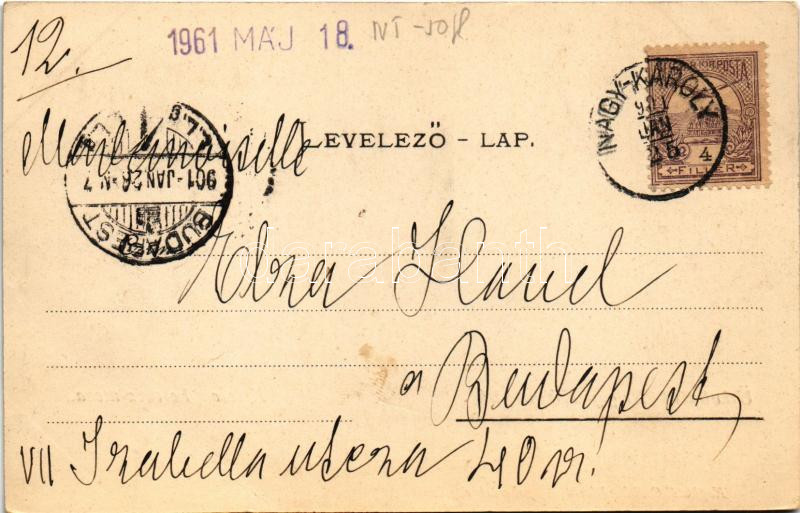 12.
1961 MÁJ 18.
KIR. POSTA
NAGY-KÁROLY
901
JAN
25
4
FILLÉR
LEVELEZŐ - LAP.
Mademoiselle
901 - JAN 26 - N 7
BUDAPEST
Havel
darabanth
à
Budapest
VII Izabella utcza 40 sz.